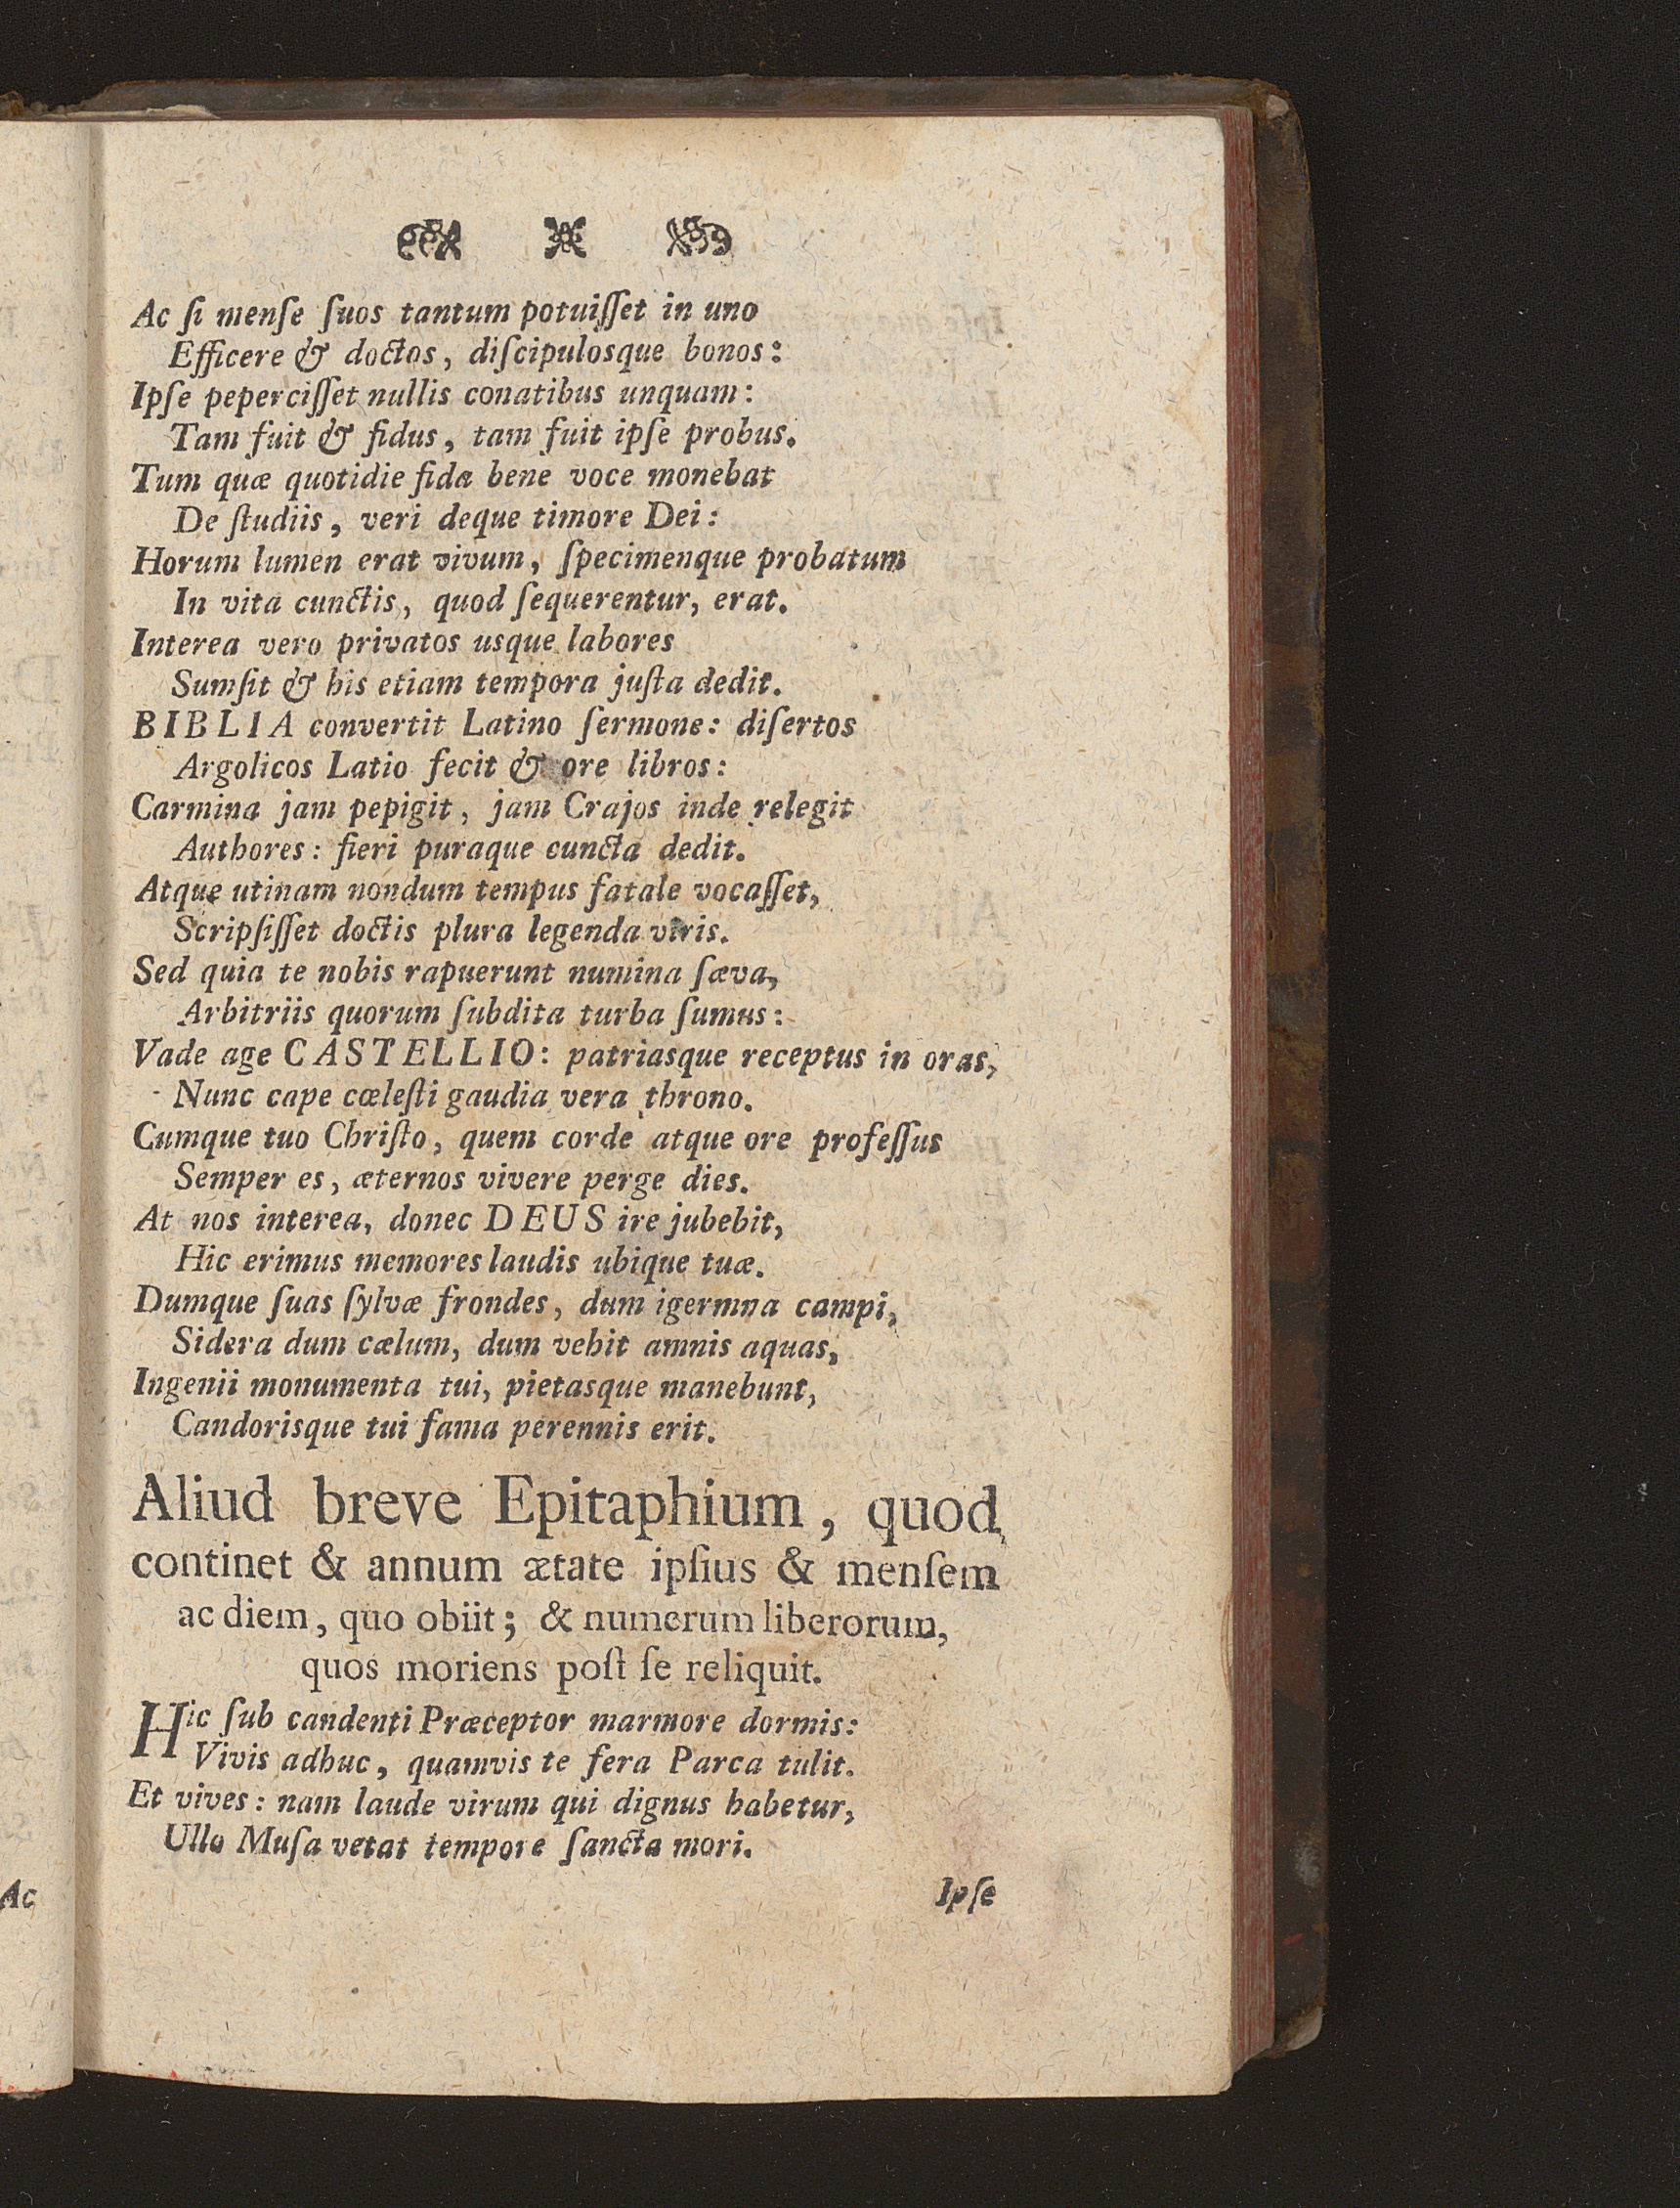 Ac ſi menſe ſuos tantum potuiſſet in uno
Efficere & doctos, diſcipulosque bonos:
Ipſe peperciſſet nullis conatibus unquam:
Tam fuit & fidus, tam fuit ipſe probus.
Tum quæ quotidie fida bene voce monebat
De ſtudiis, veri deque timore Dei:
Horum lumen erat vivum, ſpecimenque probatum
In vita cunctis, quod ſequerentur, erat.
Interea vero privatos usque labores
Sumſit & his etiam tempora juſta dedit.
BIBLIA convertit Latino ſermone: diſertos
Argolicos Latio fecit & ore libros:
Carmina jam pepigit, jam Crajos inde relegit
Authores: fieri puraque cuncta dedit.
Atque utinam nondum tempus fatale vocaſſet,
Scripſiſſet doctis plura legenda viris.
Sed quia te nobis rapuerunt numina ſæva,
Arbitriis quorum ſubdita turba ſumus:
Vade age CASTELLIO: patriasque receptus in oras,
Nunc cape cœleſti gaudia vera throno.
Cumque tuo Chriſto, quem corde atque ore profeſſus
Semper es, æternos vivere perge dies.
At nos interea, donec DEUS ire jubebit,
Hic erimus memores laudis ubique tuæ.
Dumque ſuas ſylvæ frondes, dum igermna campi,
Sidera dum cælum, dum vehit amnis aquas,
Ingenii monumenta tui, pietasque manebunt,
Candorisque tui fama perennis erit.
Aliud breve Epitaphium, quod
continet & annum ætate ipſius & menſem
ac diem, quo obiit; & numerum liberorum,
quos moriens poſt ſe reliquit.
Hic ſub candenti Præceptor marmore dormis:
Vivis adhuc, quamvis te fera Parca tulit.
Et vives: nam laude virum qui dignus habetur,
Ullo Muſa vetat tempore ſancta mori.
Ac
Ipſe